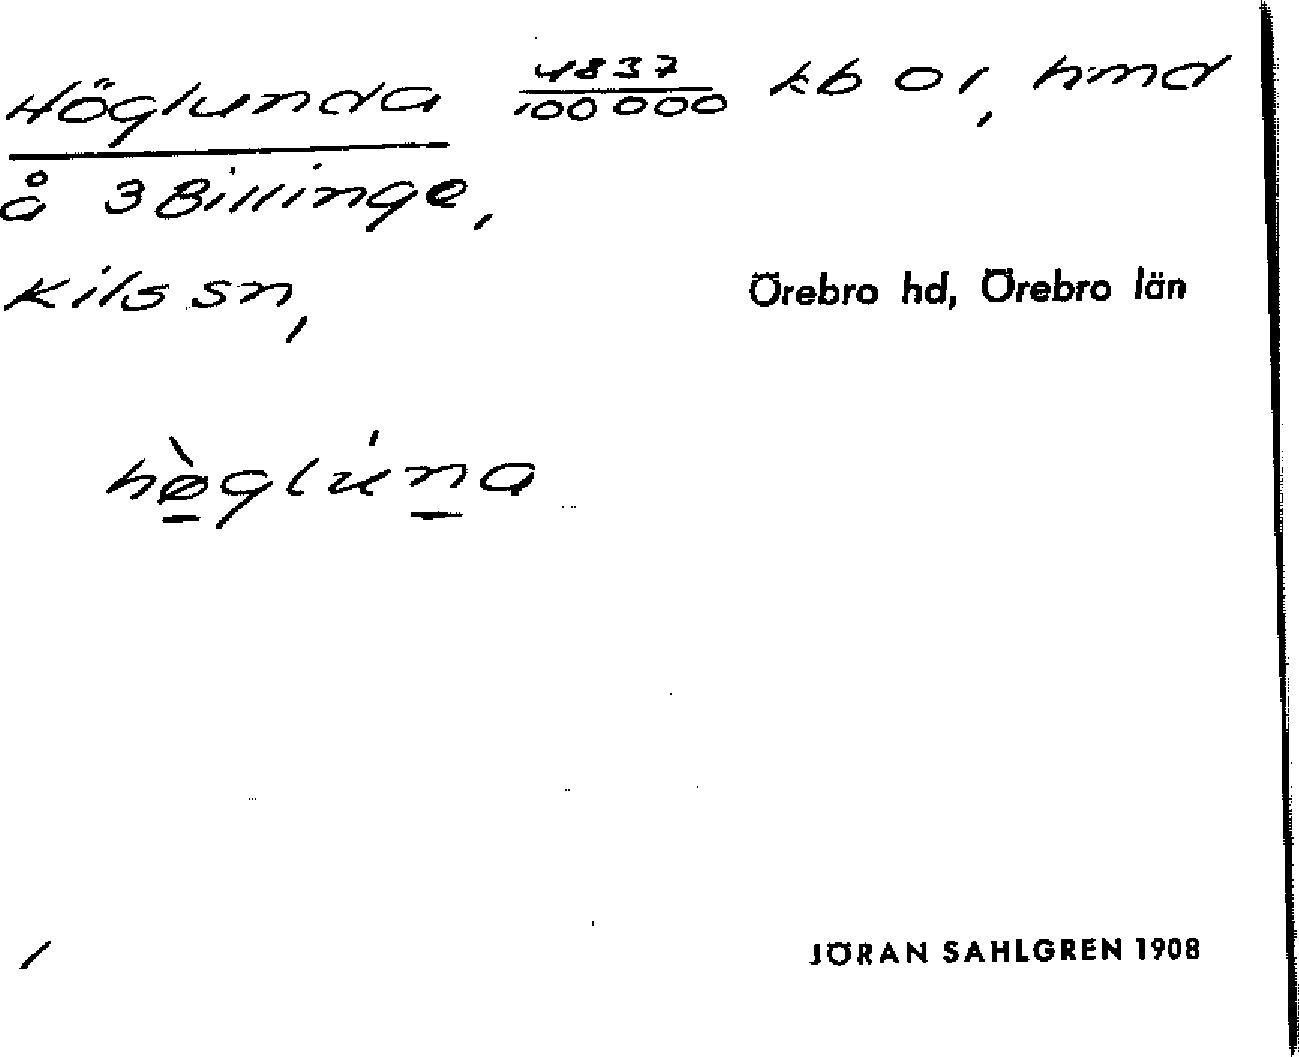 Höglunda 4837/100 000 kb 01, hmd
å 3 Billinge,
Kils sn, Örebro hd, Örebro län
hø̀glúna
/
JÖRAN SAHLGREN 1908